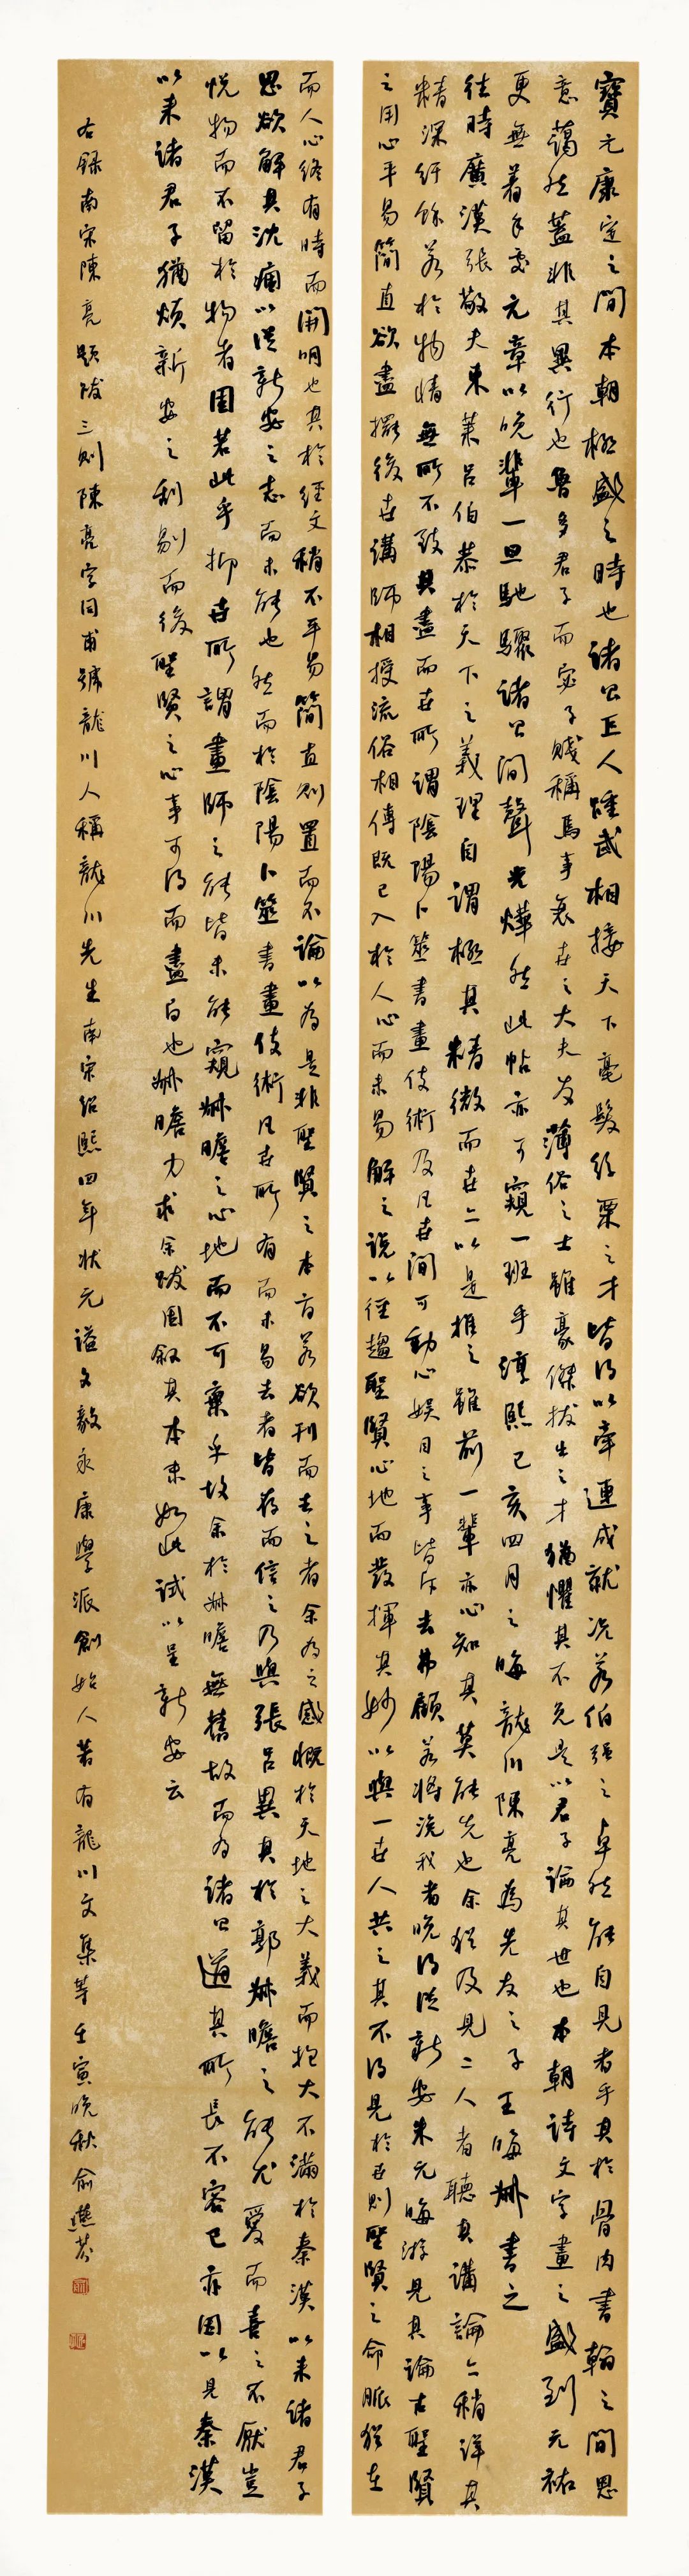 寶元康定之間本朝極盛之時也諸公正人踵武相接天下毫髮絲粟之才皆得以牽連成就況若伯強之卓然能自見者乎其於骨肉書翰之間思
意藹然蓋非其異行也魯多君子而宓子賤稱焉事衰世之大夫友薄俗之士雖豪傑拔出之才猶懼其不免是以君子論其世也本朝詩文字畫之盛到元祐
更無着手處元章以晚輩一旦馳驟諸公間聲光燁然此帖亦可窺一班乎淳熙己亥四月之晦龍川陳亮為先友之子王晦叔書之
往時廣漢張敬夫東萊呂伯恭於天下之義理自謂極其精微而世亦以是推之雖前一輩亦心知其莫能先也余猶及見二人者聽其講論亦稍詳其
精深紆餘若於物情無所不致其盡而世所謂陰陽卜筮書畫伎術及凡世間可動心娛目之事皆斥去弗顧若將浼我者晚得從新安朱元晦游見其論古聖賢
之用心平易簡直欲盡擺後世講師相授流俗相傳既已入於人心而未易解之說以徑趨聖賢心地而發揮其妙以與一世人共之其不得見於世則聖賢之命脈猶在
而人心終有時而開明也其於經文稍不平易簡直則置而不論以為是非聖賢之本旨若欲刊而去之者余為之感慨於天地之大義而抱大不滿於秦漢以來諸君子
思欲解其沈痼以從新安之志而未能也然而於陰陽卜筮書畫伎術凡世所有而未易去者皆存而信之乃與張呂異其於郭叔瞻之能尤愛而喜之不厭豈
悅物而不留於物者固若此乎抑世所謂畫師之能皆未能窺叔瞻之心地而不可棄乎故余於叔瞻無舊故而為諸公道其所長不容已亦因以見秦漢
以來諸君子猶煩新安之刮剔而後聖賢之心事可得而盡白也叔瞻力求余跋因敘其本末如此試以呈新安云
右錄南宋陳亮題跋三則陳亮字同甫號龍川人稱龍川先生南宋紹熙四年狀元謚文毅永康學派創始人著有龍川文集等壬寅晚秋俞燕芬